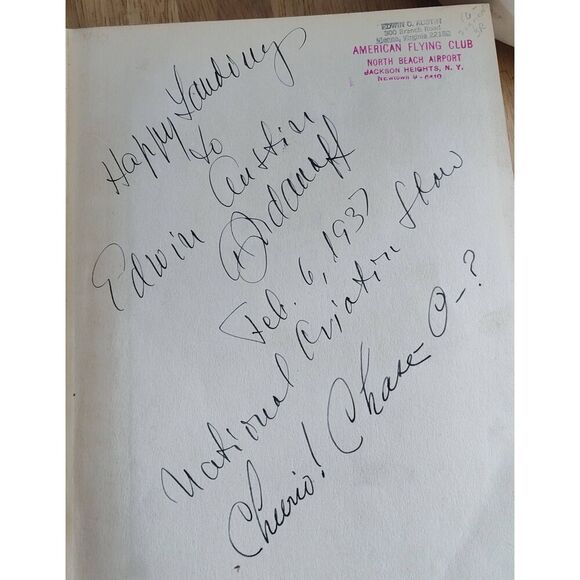 EDWIN C. AUSTIN
300 Branch Road
Vienna, Virginia 22180
AMERICAN FLYING CLUB
NORTH BEACH AIRPORT
JACKSON HEIGHTS, N. Y.
NEWTOWN 9-6410
Happy Landings
to
Edwin Austin
Feb. 6, 1937
National Aviation Show
Cheerio! Chase-O-?